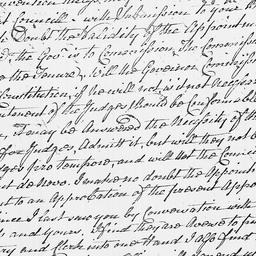 t Councill - will Submission to
to Doubt the Validity of the Appointm
d, the Gov.r is to Commission, the Commissi
to the Tenure, Will the Governor Commissi
Constitution, if he will not, is it not Necess
intment of the Judges should be Conformabl
, it may be Answered the Necessity of th
of Judges, Admit it, but will they not b
udges pro tempore, and will not the Counci
t de Novo. I make no doubt the Appoint
nt to an Approbation of the present Appo
Since I last saw you by Conversation with
s, and yours, I find they are Averse to pu
ry and Clerk into one Hand I also find